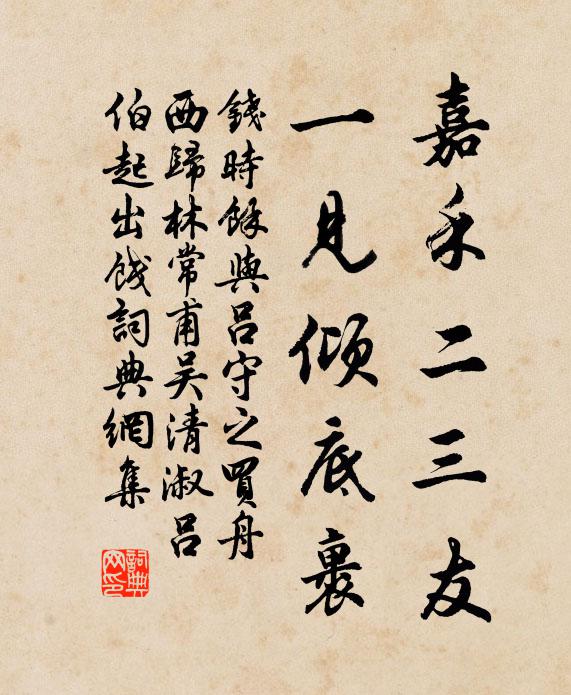 嘉禾二三友
一見傾底裏
錢時餘與呂守之買舟
西歸林常甫吳清淑呂
伯起出餞詞典網集
詞典
网印